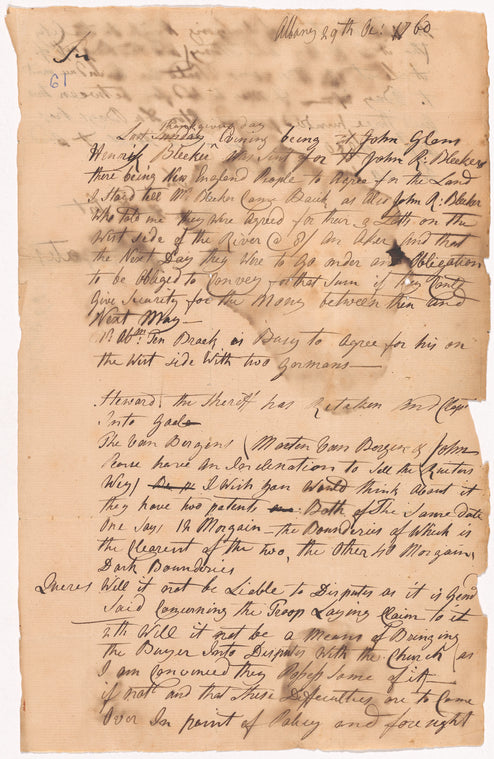 Albany 29th 1760
Sir
19
thanksgiving day
Last Sunday Evening being at John Glens
Henry Bleeker Was Sent for to John R: Bleekers
there being New England People to Agree for the Land
I Stayd till Mr Bleeker Came Back as also John R: Bleeker
Who told me they were Agreed for their 2 Lotts on the
West side of the River @ 8/ An Aker And that
the Next Day they Were to Go order an Obligation
to be obliged to Convey for that Sum if they Cant
Give Security for the Mony between then and
Next May—
Ten Braek is Busy to agree for his on
the West side With two Germans—
Heward, the Sheriff has Retaken and
Into Gaol
The Van Bergens (Marten Van Bergen & John
have an Inclenation to Sell the
I Wish you Would think About it
they have two patents Both of the Same date
One Says 12 Morgain—the Bounderies of Which is
the Clearest of the two, the Other 40 Morgain,
Dark Bounderies
Queres Will it not be Liable to Disputes as it is Genl
Said Concerning the Troop Laying Claim to it
2th Will it not be a Means of Bringing
the Buyer Into Disputes With the Church (as
I am Convinced they Posess Some of it
if not and that these Difficulties are to Come
Over In point of Policy and fore right